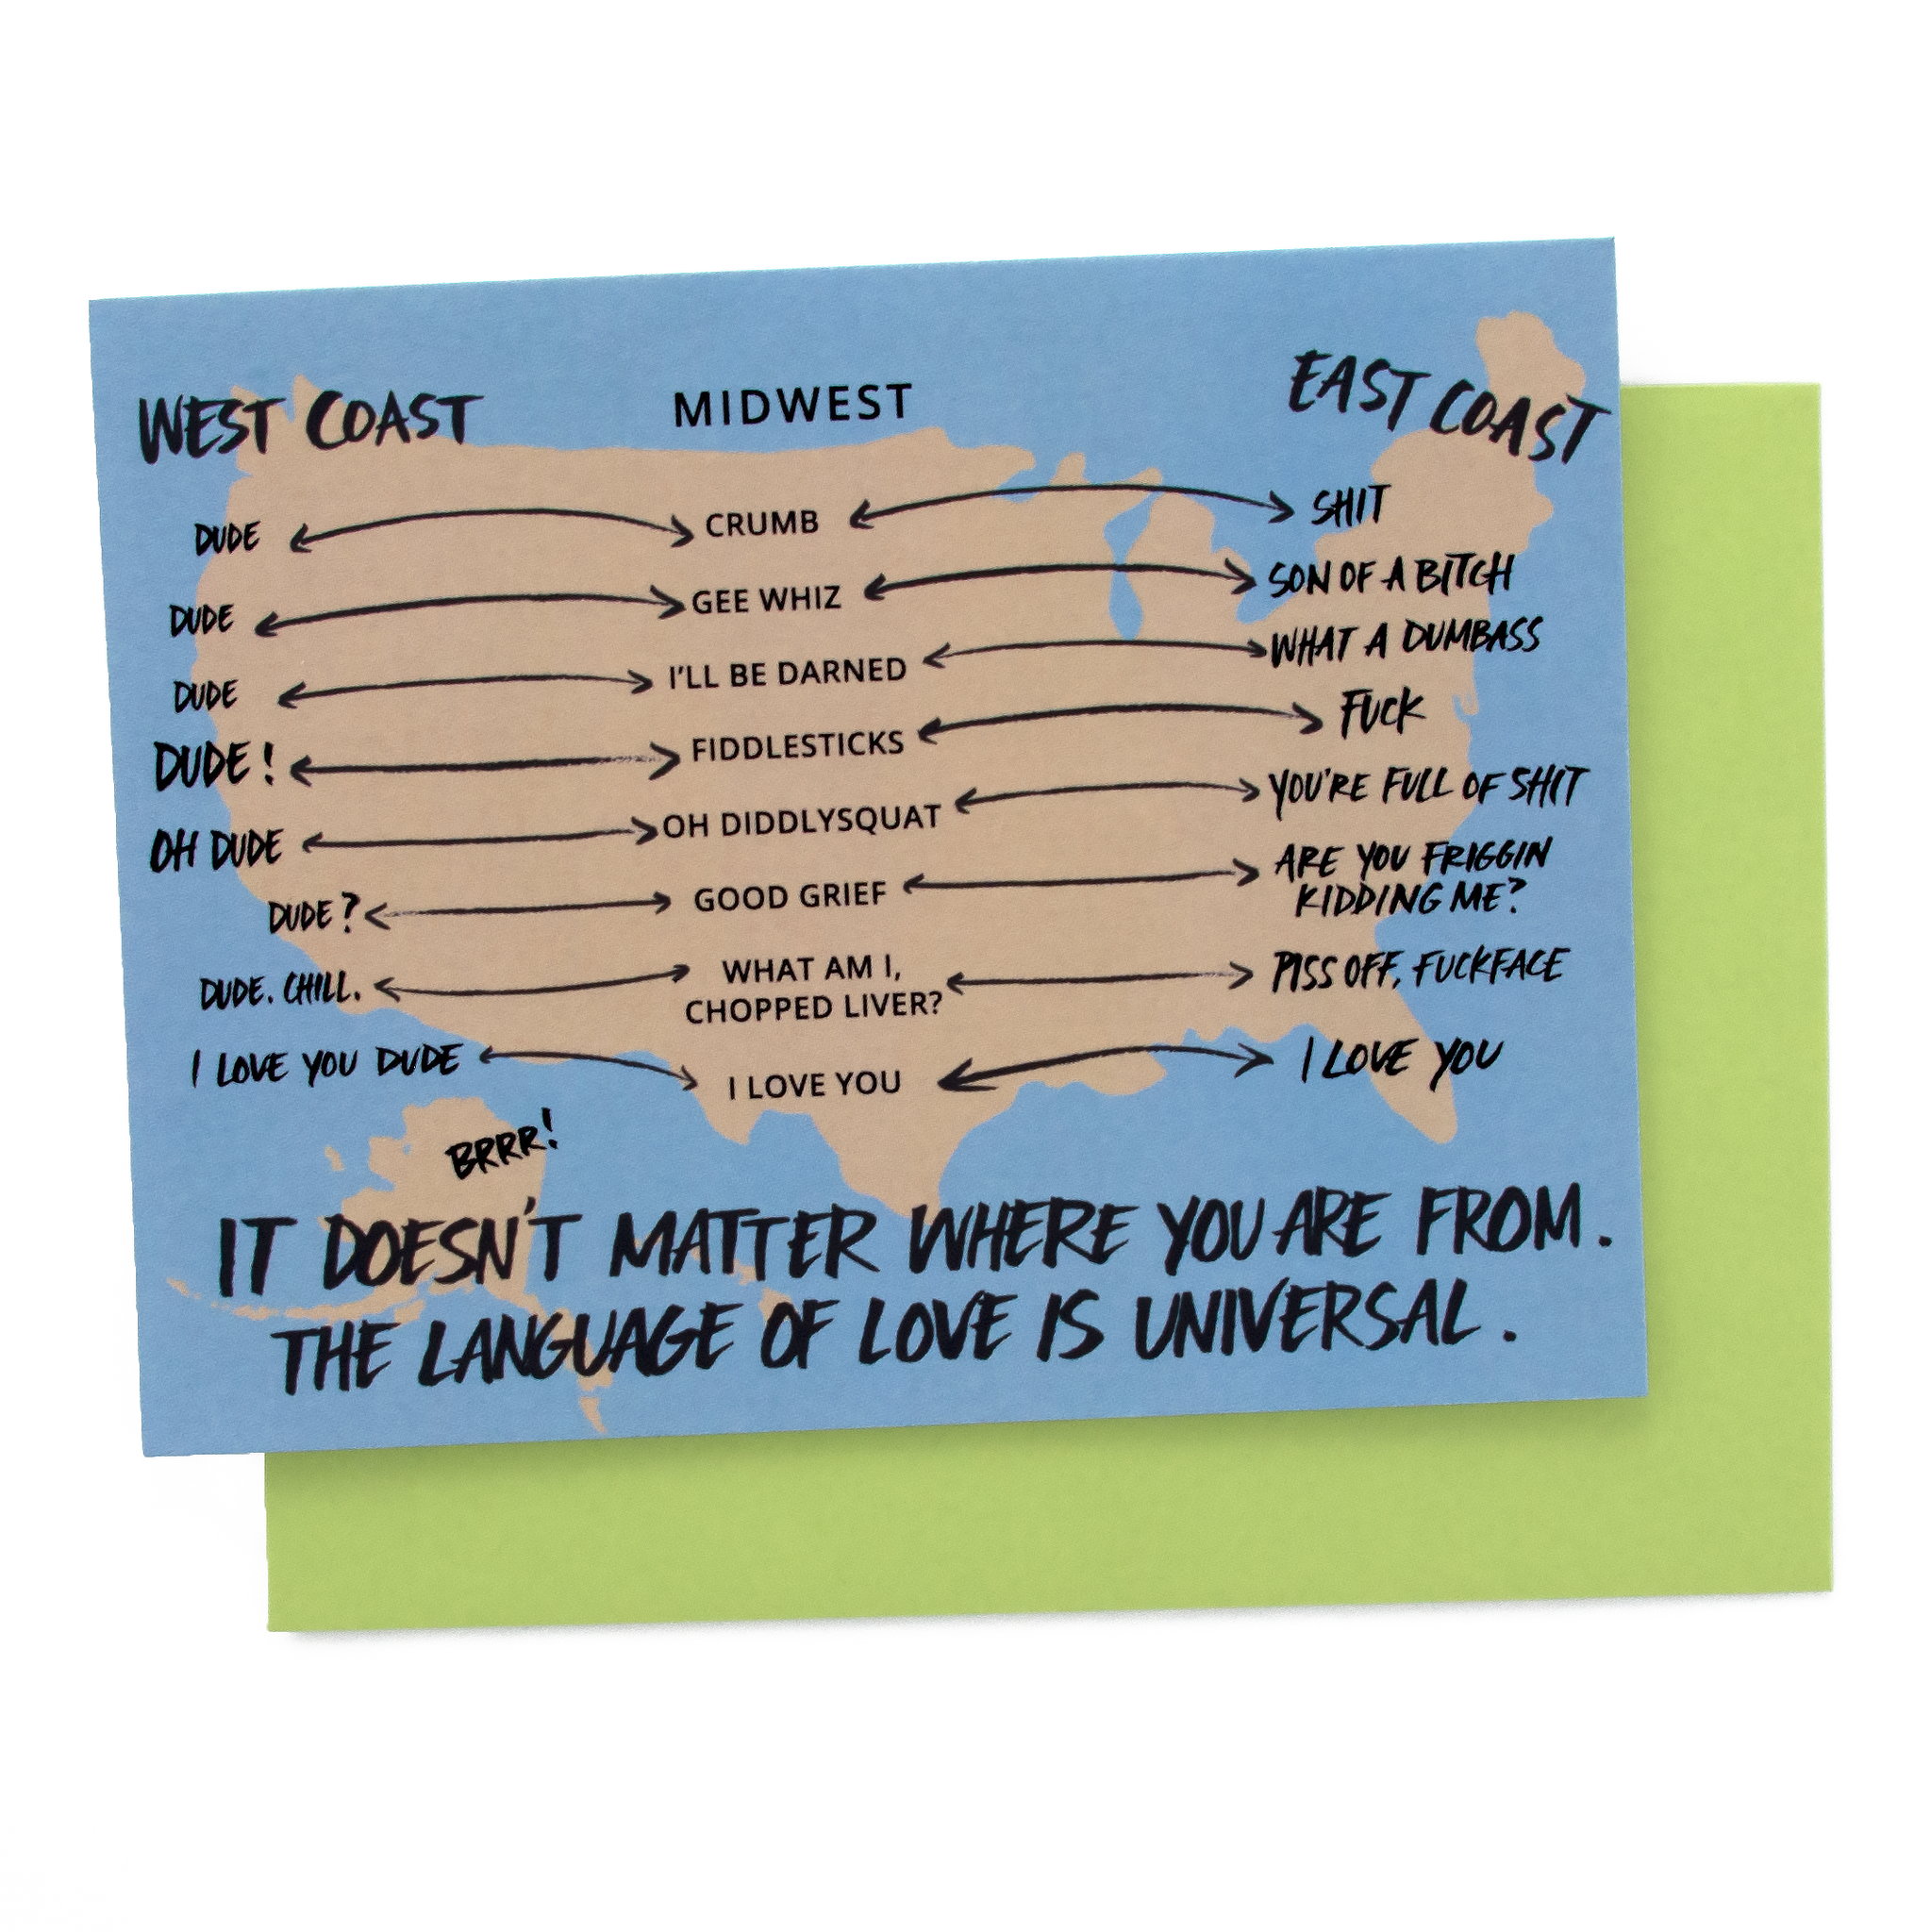 WEST COAST MIDWEST EAST COAST
DUDE CRUMB SHIT
DUDE GEE WHIZ SON OF A BITCH
DUDE I'LL BE DARNED WHAT A DUMBASS
DUDE! FIDDLESTICKS FUCK
OH DUDE OH DIDDLYSQUAT YOU'RE FULL OF SHIT
DUDE? GOOD GRIEF ARE YOU FRIGGIN
KIDDING ME?
DUDE. CHILL. WHAT AM I, PISS OFF, FUCKFACE
CHOPPED LIVER?
I LOVE YOU DUDE I LOVE YOU I LOVE YOU
BRRR!
IT DOESN'T MATTER WHERE YOU ARE FROM.
THE LANGUAGE OF LOVE IS UNIVERSAL.